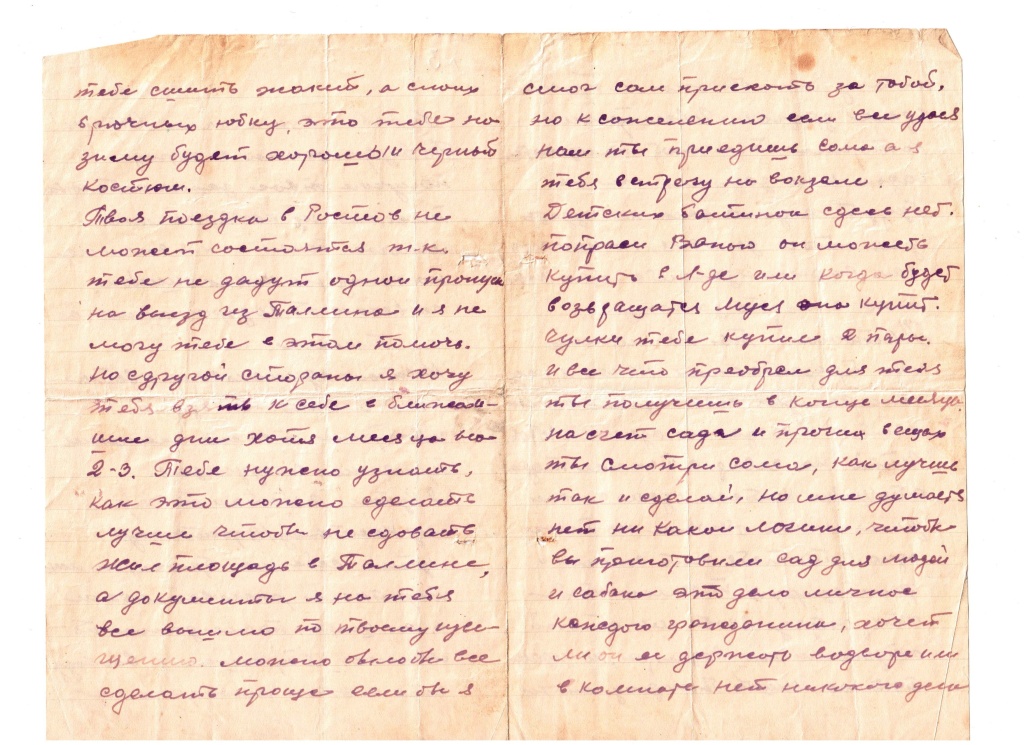 тебе сшить жакет, а с моих
брючных юбку, это тебе на
зиму будет хороший черный
костюм.
Твоя поездка в Ростов не
может состоятся т.к.
тебе не дадут одной пропуск
на выезд из Таллина и я не
могу тебе в этом помочь.
Но с другой стораны я хочу
тебя взять к себе в ближай-
шие дни хотя месяца на
2-3. Тебе нужно узнать,
как это можно сделать
лучше чтобы не сдовать
жил площадь в Таллине,
а документы я на тебя
все вышлю по твоему
можно было бы все
сделать проще если бы я
смог сам приехать за тобой,
но к сожелению если все удася
нам ты приедишь сама а я
тебя встречу на вокзале.
Детских батинок здесь нет.
попраси Ваню он можеть
купить в Л-де или когда будет
возвращатся Муся она купит.
Чулки тебе купил 2 пары.
и все что преобрел для тебя
ты получишь в конце месяца.
насчет сада и прочих вещах
ты смотри сама, как лучше
так и сделай, но мне думаетя
нет ни какой логики, чтобы
вы приготовили сад для людей
и сабака это дело личное
каждого гражданина, хочет
ли он ее держать водворе или
в комнате нет никокого дела